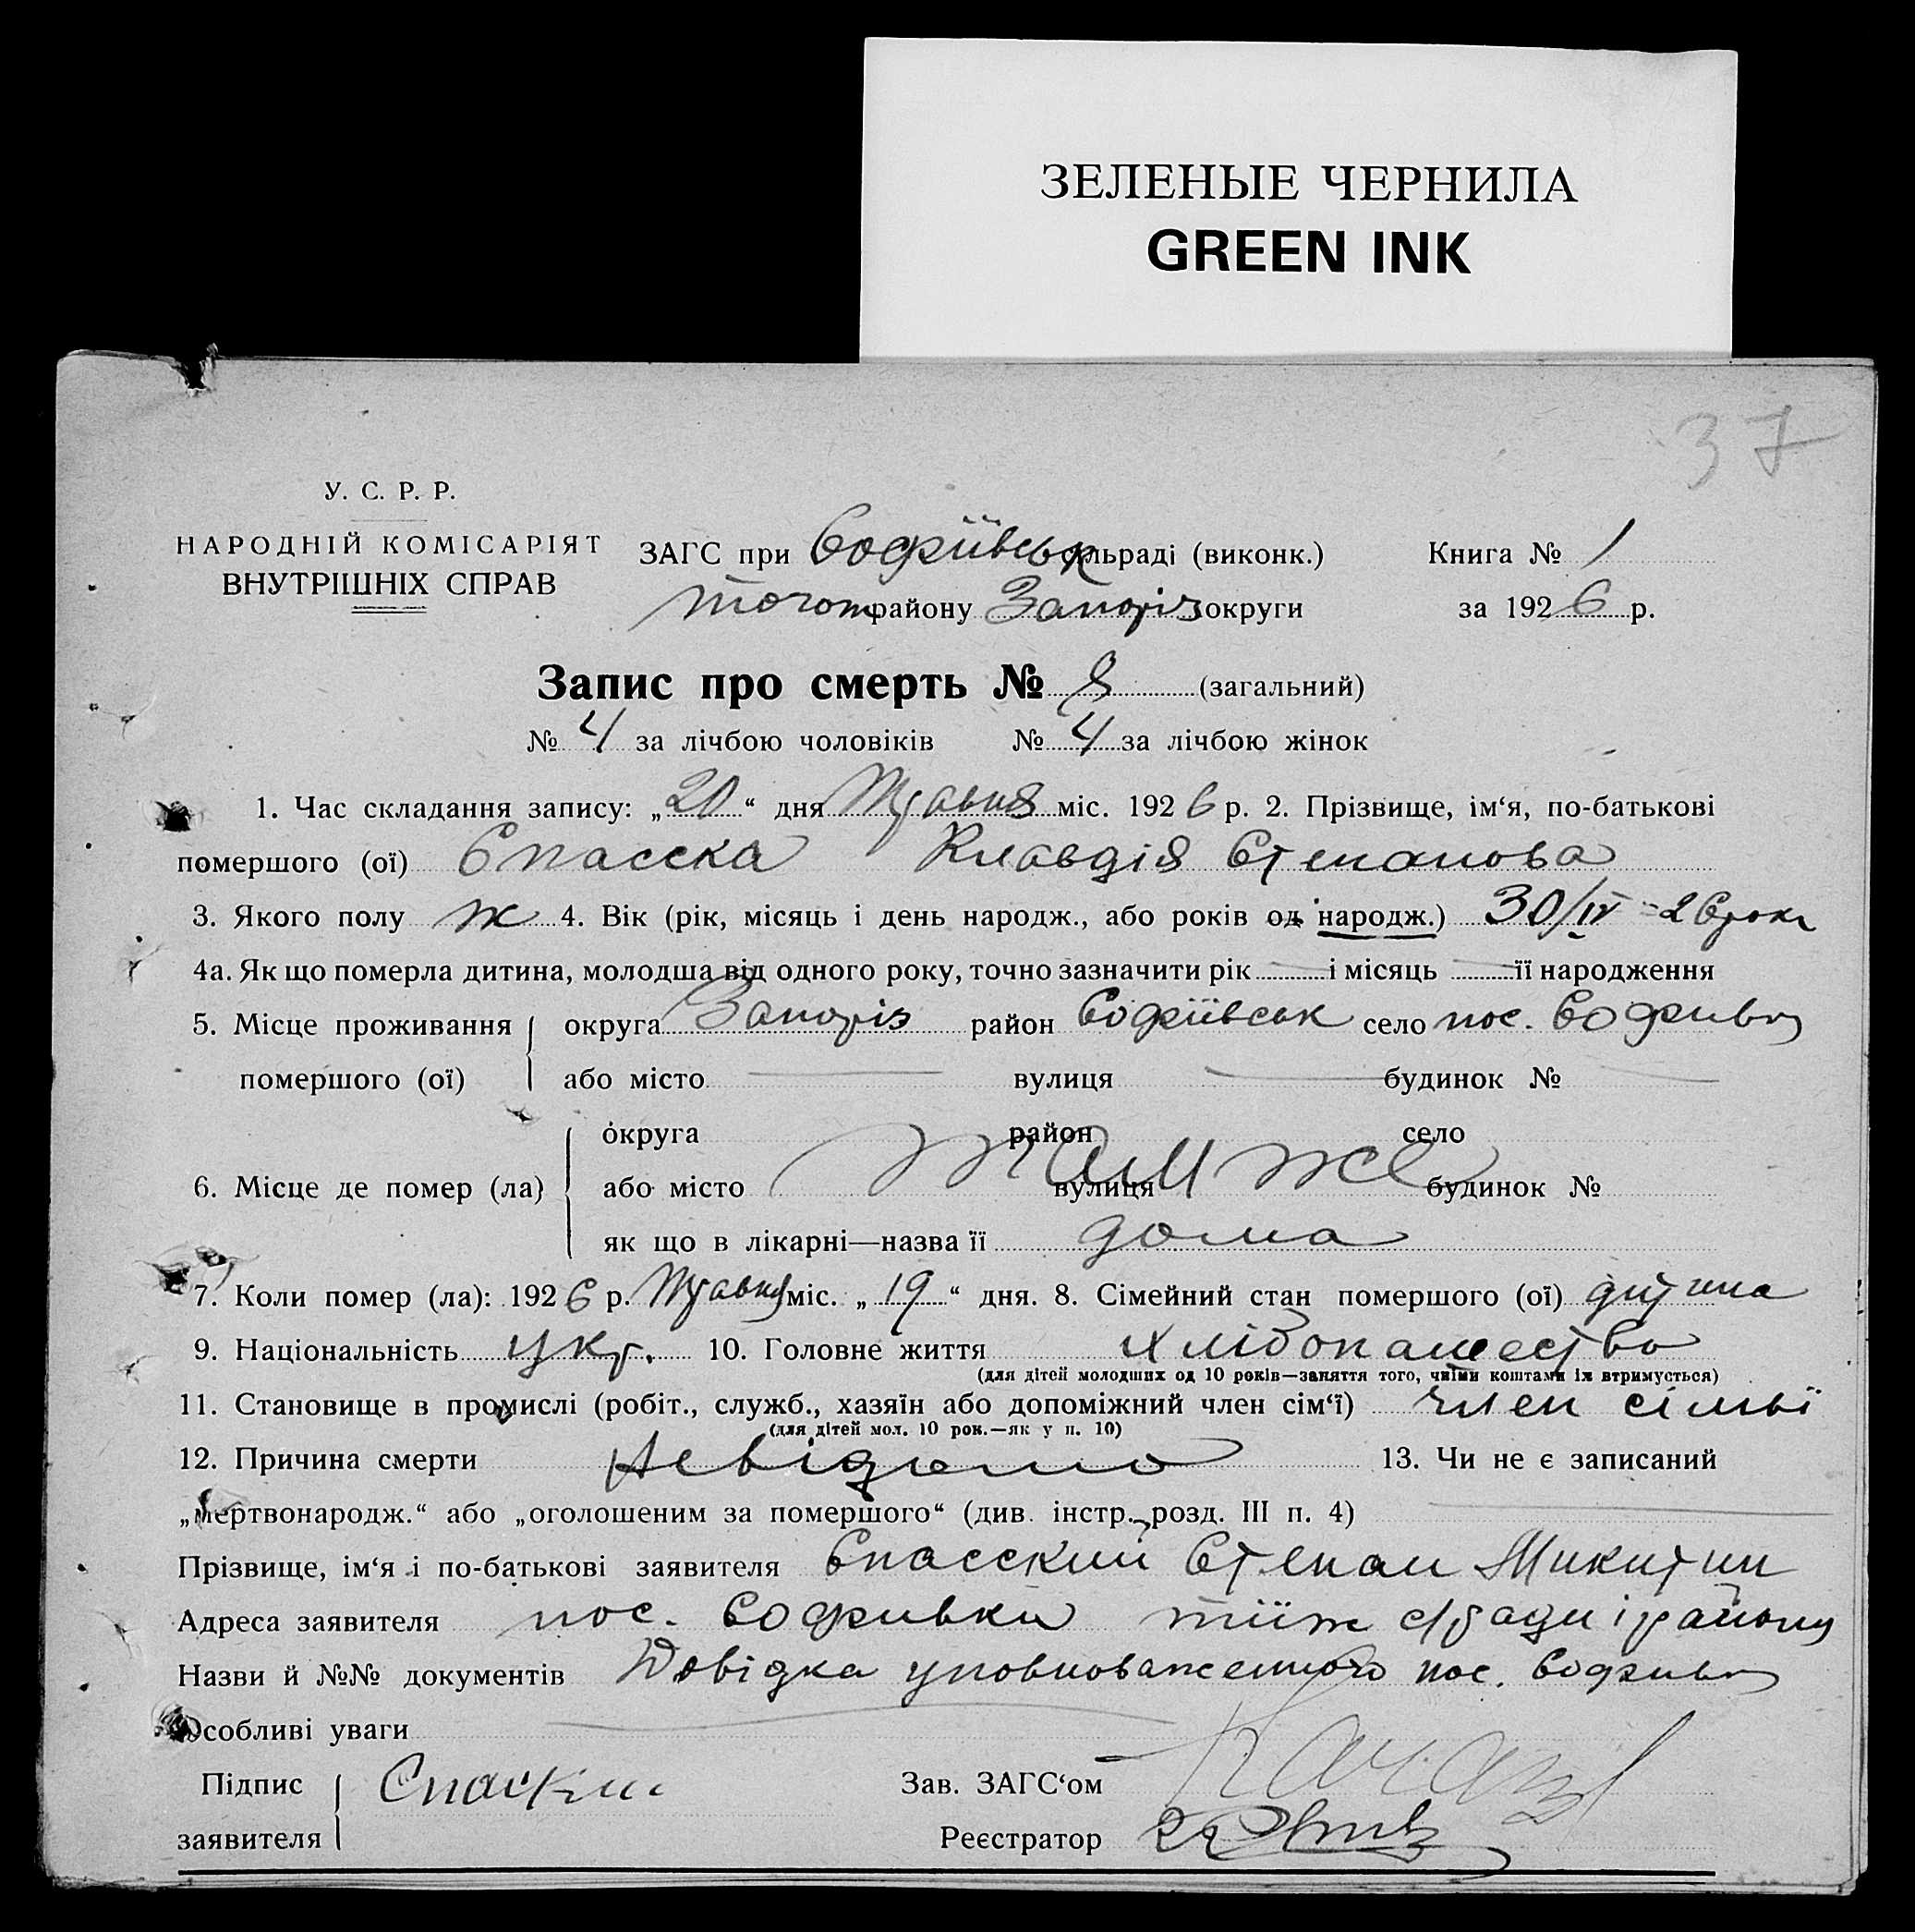 ЗЕЛЕНЫЕ ЧЕРНИЛА
GREEN INK
37
У. С. Р. Р.
НАРОДНІЙ КОМІСАРІЯТ
ВНУТРІШНІХ СПРАВ
ЗАГС при Софіївськ сільраді (виконк.) Книга № 1
Точом району Запоріз округи за 1926 р.
Запис про смерть № 8 (загальний)
№ 4 за лічбою чоловіків № 4 за лічбою жінок
1. Час складання запису: „20“ дня Травня міс. 1926 р. 2. Прізвище, ім‘я, по-батькові
помершого (ої) Спасска Клавдія Степанова
3. Якого полу ж 4. Вік (рік, місяць і день народж., або років од народж.) 30/IV 26 роки
4а. Як що померла дитина, молодша від одного року, точно зазначити рік — і місяць — її народження
5. Місце проживання округа Запоріз район Софіївськ село пос. Софивка
помершого (ої) або місто — вулиця — будинок № —
округа район село
6. Місце де помер (ла) або місто там же вулиця будинок №
як що в лікарні—назва її дома
7. Коли помер (ла): 1926 р. Травня міс. „19“ дня. 8. Сімейний стан помершого (ої) дитина
9. Національність укр. 10. Головне життя хлібопашество
(для дітей молодших од 10 років—заняття того, чиїми коштами їх втримується)
11. Становище в промислі (робіт., служб., хазяїн або допоміжний член сім‘ї) член сімьї
(для дітей мол. 10 рок.—як у п. 10)
12. Причина смерти Невідомо 13. Чи не є записаний
„мертвонародж.“ або „оголошеним за помершого“ (див. інстр. розд. III п. 4) —
Прізвище, ім‘я і по-батькові заявителя Спасский Степан Микитин
Адреса заявителя пос. Софивки тіїж с/ради і району
Назви й №№ документів Довідка уповноваженного пос. Софивки
Особливі уваги —
Підпис Спаский Зав. ЗАГС‘ом
заявителя Реєстратор